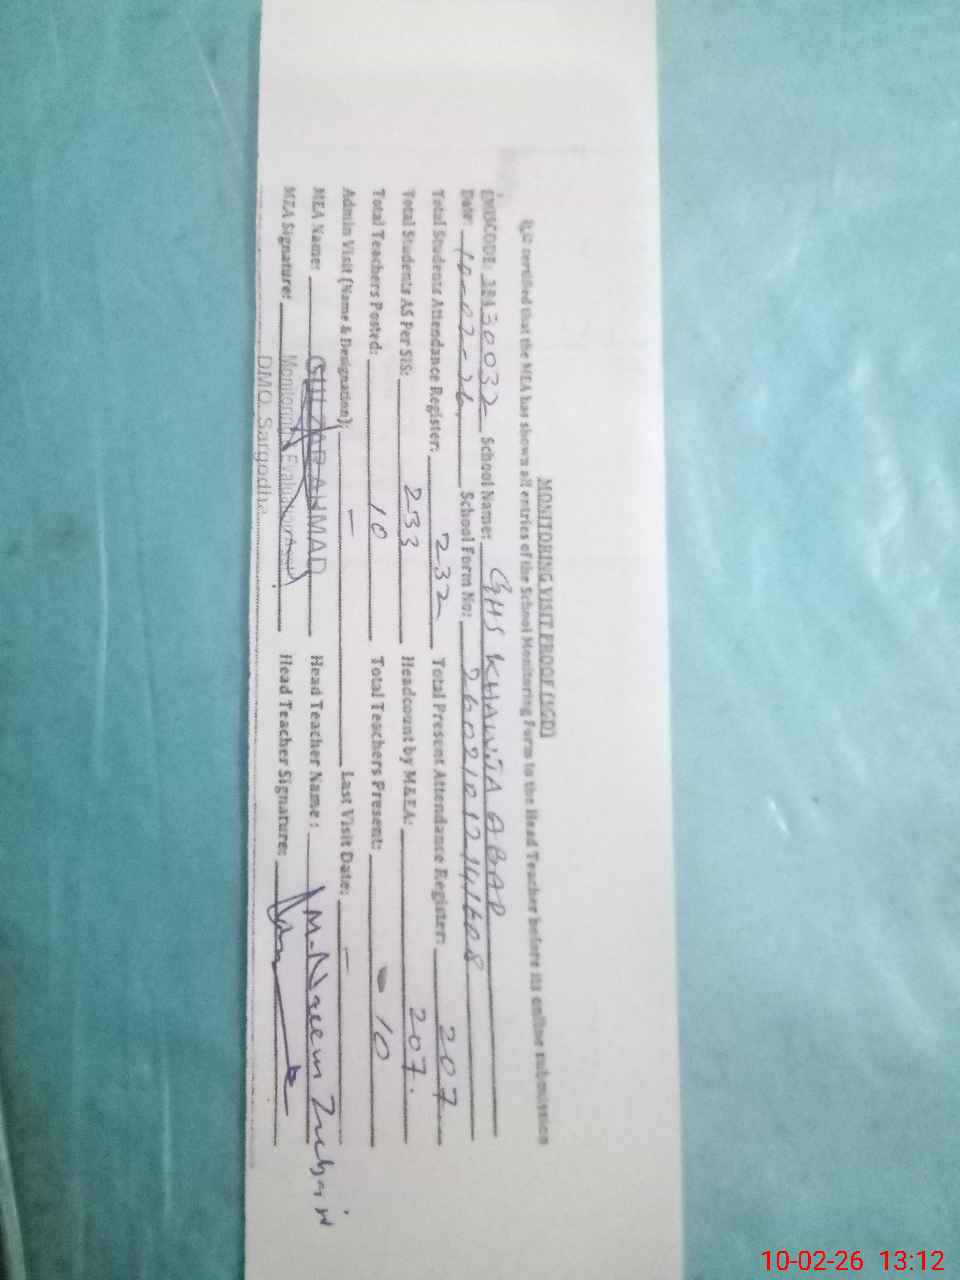 MONITORING VISIT PROOF (SGD)
It is certified that the MEA has shown all entries of the School Monitoring Form to the Head Teacher before its online submission
EMISCODE: 38430032 School Name: GHS KHAWJA ABAD
Date: 10-02-26 School Form No:
Total Students Attendance Register: 232 Total Present Attendance Register: 207
Total Students AS Per SIS: 233 Headcount by M&EA: 207.
Total Teachers Posted: 10 Total Teachers Present: 10
Admin Visit (Name & Designation): - Last Visit Date: -
MEA Name: GULZAR AHMAD Head Teacher Name: M. Naeem Zubair
MEA Signature: Monitoring Evaluation Head Teacher Signature:
DMO Sargodha
10-02-26 13:12